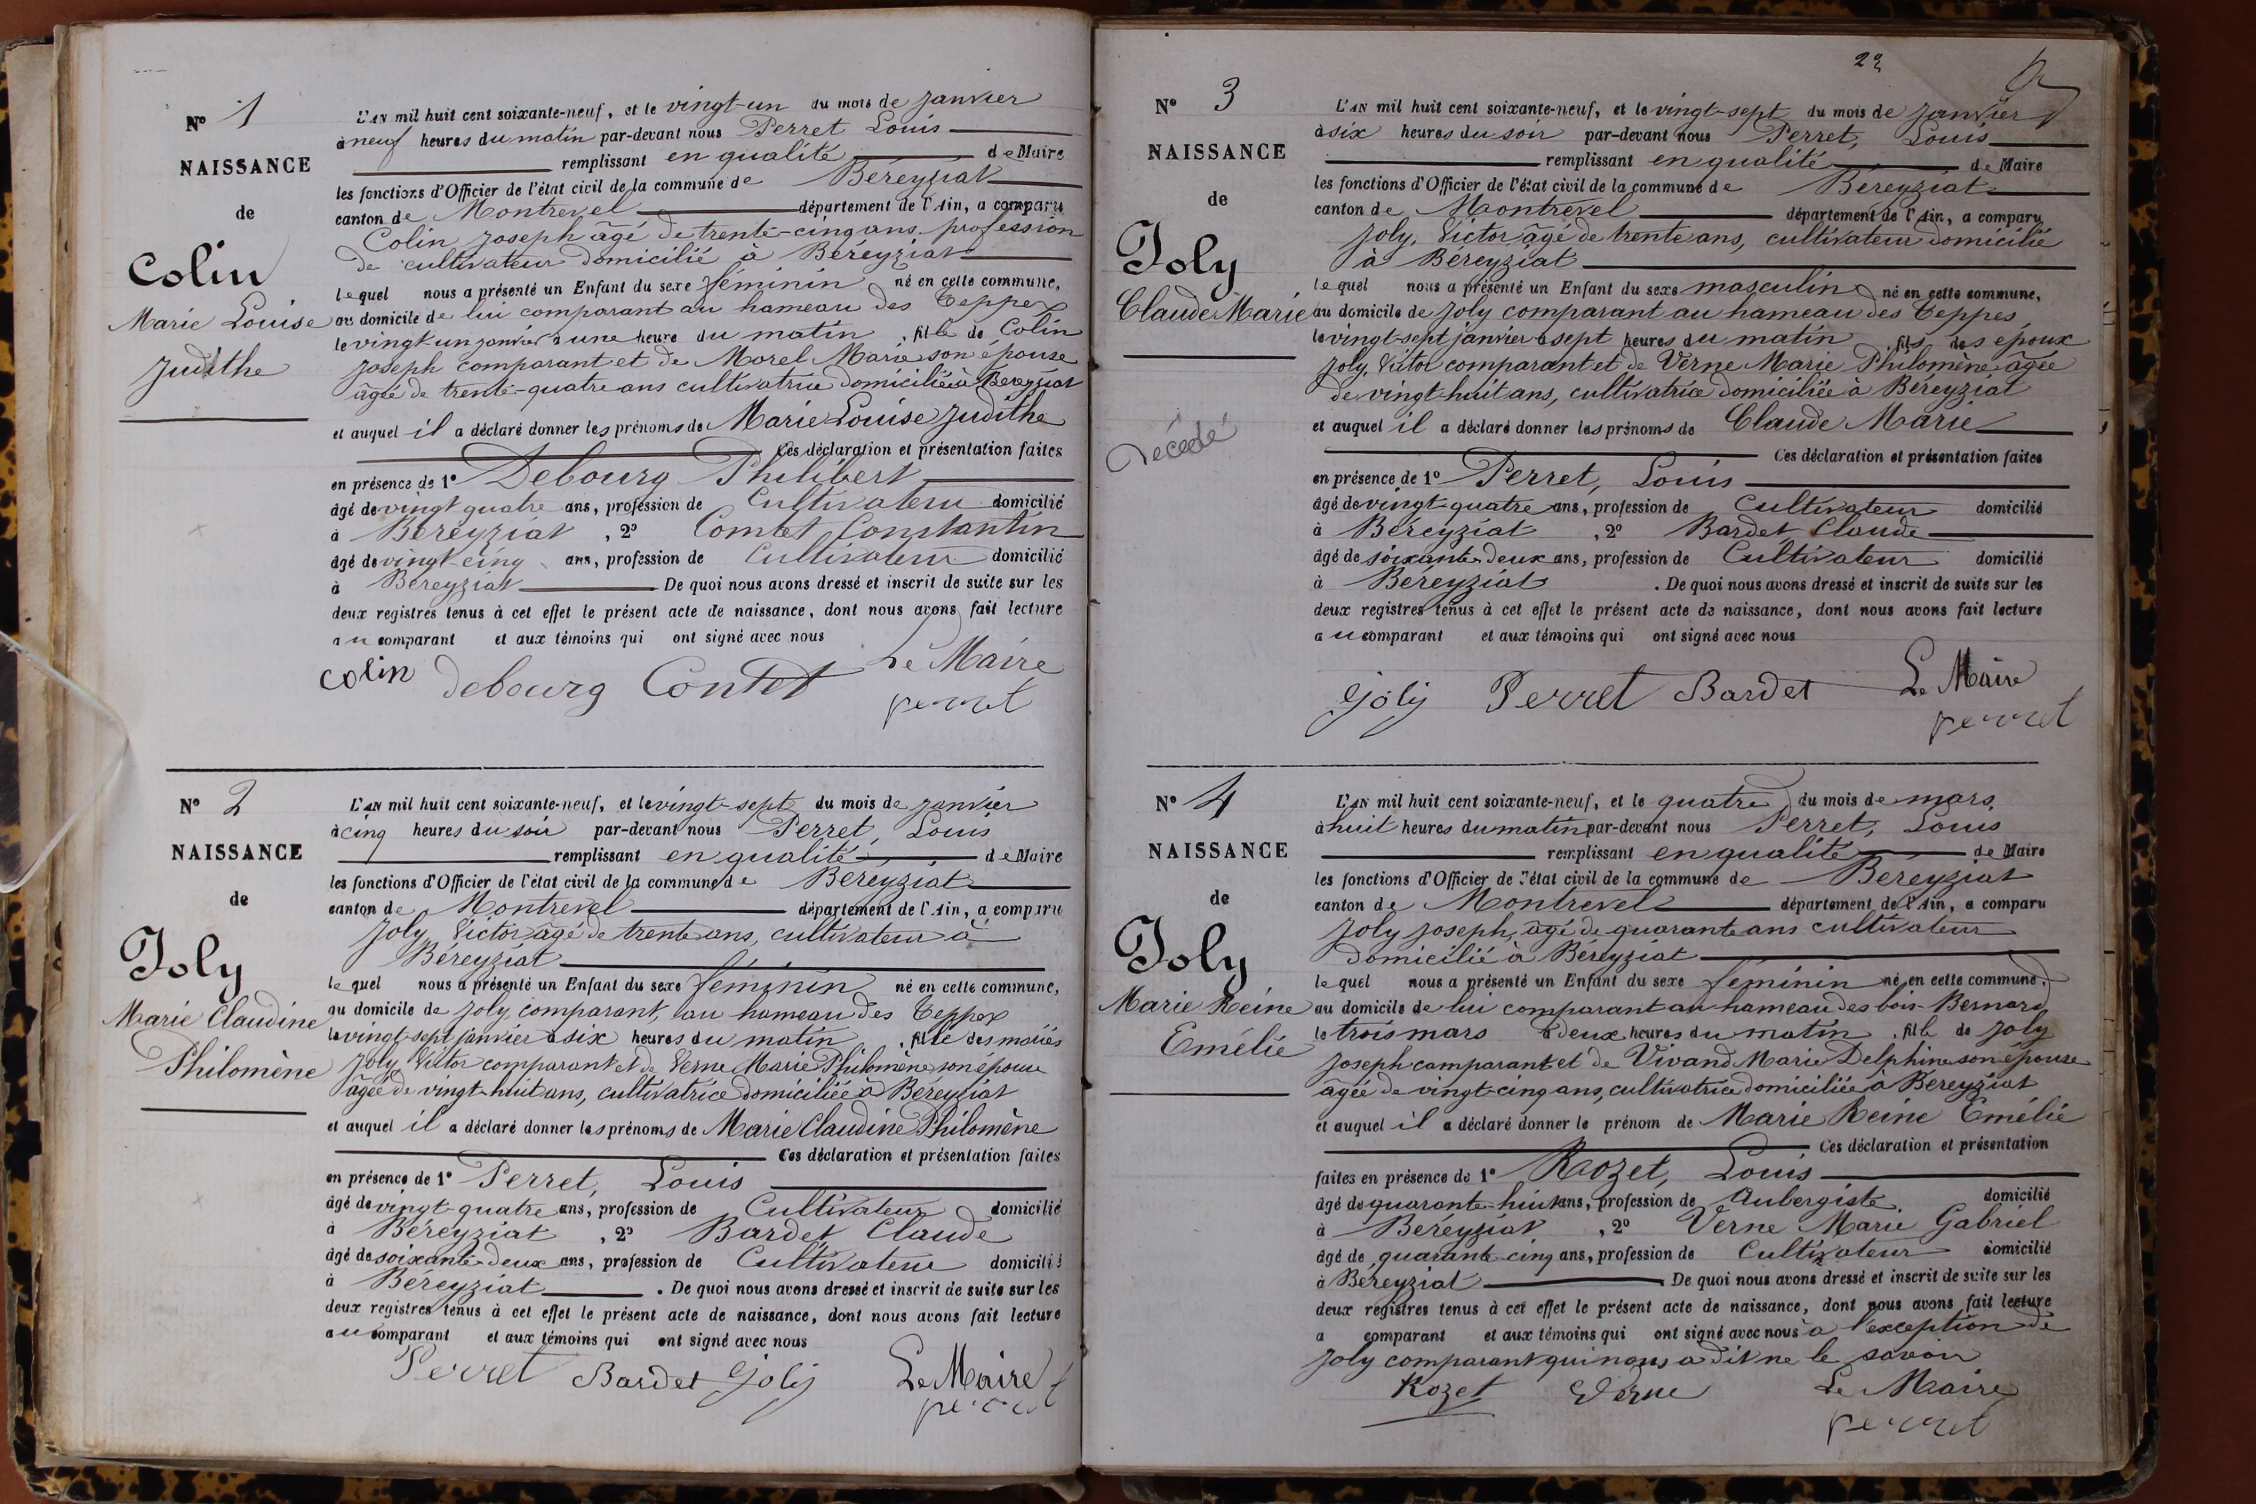 Nº 1
NAISSANCE
de
Colin
Marie Louise
Judithe
L'AN mil huit cent soixante-neuf, et le vingt-un du mois de janvier
à neuf heures du matin par-devant nous Perret Louis
remplissant en qualité de Maire
les fonctions d'Officier de l'état civil de la commune de Béreyziat
canton de Montrevel département de l'Ain, a comparu
Colin Joseph âgé de trente-cinq ans profession
de cultivateur domicilié à Béreyziat
lequel nous a présenté un Enfant du sexe féminin né en cette commune,
au domicile de lui comparant au hameau des Teppes
le vingt un janvier à une heure du matin, fille de Colin
Joseph comparant et de Morel Marie son épouse
âgée de trente-quatre ans cultivatrice domiciliée à Béreyziat
et auquel il a déclaré donner les prénoms de Marie Louise Judithe
Ces déclaration et présentation faites
en présence de 1º Debourg Philibert
âgé de vingt quatre ans, profession de Cultivateur domicilié
à Béreyziat, 2º Comtet Constantin
âgé de vingt-cinq ans, profession de Cultivateur domicilié
à Béreyziat De quoi nous avons dressé et inscrit de suite sur les
deux registres tenus à cet effet le présent acte de naissance, dont nous avons fait lecture
au comparant et aux témoins qui ont signé avec nous
Le Maire
colin debourg Contet
perret
Nº 2
NAISSANCE
de
Joly
Marie Claudine
Philomène
L'AN mil huit cent soixante-neuf, et le vingt-sept du mois de janvier
à cinq heures du soir par-devant nous Perret, Louis
remplissant en qualité de Maire
les fonctions d'Officier de l'état civil de la commune de Béreyziat
canton de Montrevel département de l'Ain, a comparu
Joly Victor âgé de trente ans, cultivateur à
Béreyziat
lequel nous a présenté un Enfant du sexe féminin né en cette commune,
au domicile de Joly comparant, au hameau des Teppes
le vingt-sept janvier à six heures du matin, fille des mariés
Joly, Victor comparant et de Verne Marie Philomène son épouse
âgée de vingt-huit ans, cultivatrice domiciliée à Béreyziat
et auquel il a déclaré donner les prénoms de Marie Claudine Philomène
Ces déclaration et présentation faites
en présence de 1º Perret, Louis
âgé de vingt-quatre ans, profession de Cultivateur domicilié
à Béreyziat, 2º Bardet Claude
âgé de soixante deux ans, profession de Cultivateur domicilié
à Béreyziat. De quoi nous avons dressé et inscrit de suite sur les
deux registres tenus à cet effet le présent acte de naissance, dont nous avons fait lecture
au comparant et aux témoins qui ont signé avec nous
Perret Bardet Joly Le Maire
perret
23
Nº 3
NAISSANCE
de
Joly
Claude Marie
Décédé
L'AN mil huit cent soixante-neuf, et le vingt-sept du mois de janvier
à six heures du soir par-devant nous Perret, Louis
remplissant en qualité de Maire
les fonctions d'Officier de l'état civil de la commune de Béreyziat
canton de Montrevel département de l'Ain, a comparu
Joly, Victor âgé de trente ans, cultivateur domicilié
à Béreyziat
lequel nous a présenté un Enfant du sexe masculin né en cette commune,
au domicile de Joly comparant au hameau des Teppes
le vingt-sept janvier à sept heures du matin, fils des époux
Joly, Victor comparant et de Verne Marie Philomène âgée
de vingt-huit ans, cultivatrice domiciliée à Béreyziat
et auquel il a déclaré donner les prénoms de Claude Marie
Ces déclaration et présentation faites
en présence de 1º Perret, Louis
âgé de vingt quatre ans, profession de Cultivateur domicilié
à Béreyziat, 2º Bardet Claude
âgé de soixante-deux ans, profession de Cultivateur domicilié
à Béreyziat. De quoi nous avons dressé et inscrit de suite sur les
deux registres tenus à cet effet le présent acte de naissance, dont nous avons fait lecture
au comparant et aux témoins qui ont signé avec nous
Joly Perret Bardet Le Maire
perret
Nº 4
NAISSANCE
de
Joly
Marie Reine
Emélie
L'AN mil huit cent soixante-neuf, et le quatre du mois de mars
à huit heures du matin par-devant nous Perret, Louis
remplissant en qualité de Maire
les fonctions d'Officier de l'état civil de la commune de Béreyziat
canton de Montrevel département de l'Ain, a comparu
Joly Joseph, âgé de quarante ans cultivateur
domicilié à Béreyziat
lequel nous a présenté un Enfant du sexe féminin né en cette commune,
au domicile de lui comparant au hameau des bois-Bernard
le trois mars à deux heures du matin, fille de Joly
Joseph comparant et de Vivand Marie Delphine son épouse
âgée de vingt-cinq ans, cultivatrice domiciliée à Béreyziat
et auquel il a déclaré donner le prénom de Marie Reine Emélie
Ces déclaration et présentation
faites en présence de 1º Rozet, Louis
âgé de quarante-huit ans, profession de Aubergiste domicilié
à Béreyziat, 2º Verne Marie Gabriel
âgé de quarante cinq ans, profession de Cultivateur domicilié
à Béreyziat De quoi nous avons dressé et inscrit de suite sur les
deux registres tenus à cet effet le présent acte de naissance, dont nous avons fait lecture
a comparant et aux témoins qui ont signé avec nous à l'exception de
Joly comparant qui nous a dit ne le savoir
Rozet Verne Le Maire
perret